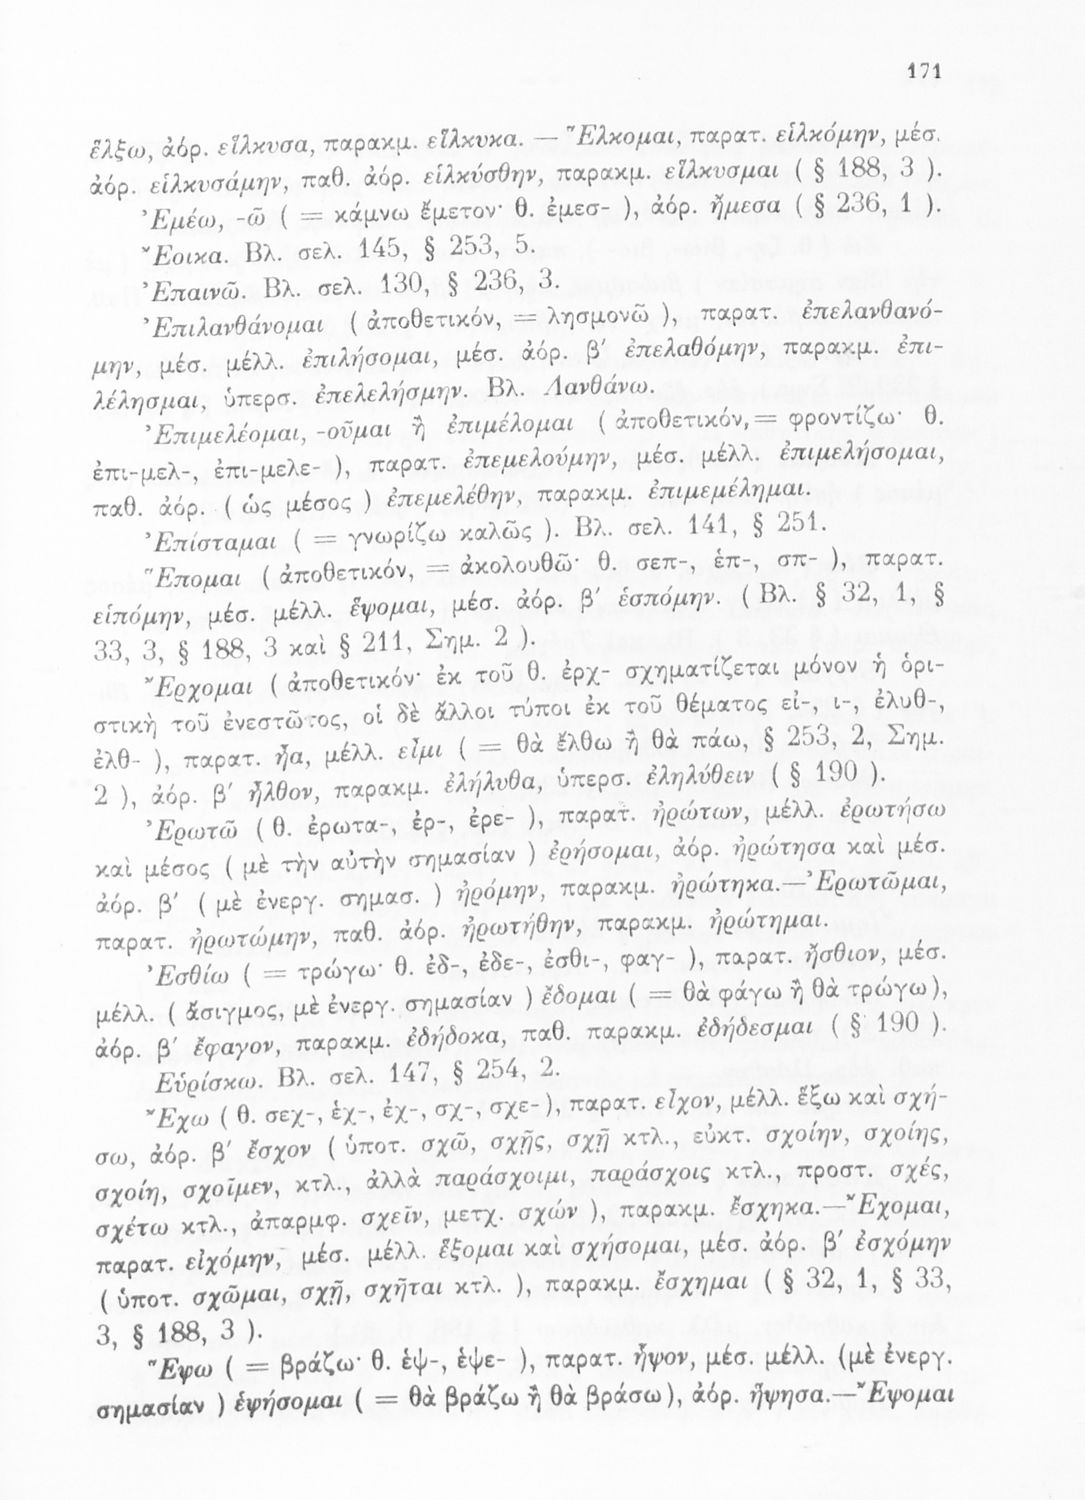 171
ἕλξω, ἀόρ. εἵλκυσα, παρακμ. εἵλκυκα. — Ἕλκομαι, παρατ. εἱλκόμην, μέσ.
ἀόρ. εἱλκυσάμην, παθ. ἀόρ. εἱλκύσθην, παρακμ. εἵλκυσμαι ( § 188, 3 ).
Ἐμέω, -ῶ ( = κάμνω ἔμετον· θ. ἐμεσ- ), ἀόρ. ἤμεσα ( § 236, 1 ).
Ἔοικα. Βλ. σελ. 145, § 253, 5.
Ἐπαινῶ. Βλ. σελ. 130, § 236, 3.
Ἐπιλανθάνομαι ( ἀποθετικόν, = λησμονῶ ), παρατ. ἐπελανθανό-
μην, μέσ. μέλλ. ἐπιλήσομαι, μέσ. ἀόρ. β′ ἐπελαθόμην, παρακμ. ἐπι-
λέλησμαι, ὑπερσ. ἐπελελήσμην. Βλ. Λανθάνω.
Ἐπιμελέομαι, -οῦμαι ἢ ἐπιμέλομαι ( ἀποθετικόν, = φροντίζω· θ.
ἐπι-μελ-, ἐπι-μελε- ), παρατ. ἐπεμελούμην, μέσ. μέλλ. ἐπιμελήσομαι,
παθ. ἀόρ. ( ὡς μέσος ) ἐπεμελέθην, παρακμ. ἐπιμεμέλημαι.
Ἐπίσταμαι ( = γνωρίζω καλῶς ). Βλ. σελ. 141, § 251.
Ἕπομαι ( ἀποθετικόν, = ἀκολουθῶ· θ. σεπ-, ἑπ-, σπ- ), παρατ.
εἱπόμην, μέσ. μέλλ. ἕψομαι, μέσ. ἀόρ. β′ ἑσπόμην. ( Βλ. § 32, 1, §
33, 3, § 188, 3 καὶ § 211, Σημ. 2 ).
Ἔρχομαι ( ἀποθετικόν· ἐκ τοῦ θ. ἐρχ- σχηματίζεται μόνον ἡ ὁρι-
στικὴ τοῦ ἐνεστῶτος, οἱ δὲ ἄλλοι τύποι ἐκ τοῦ θέματος εἰ-, ι-, ἐλυθ-,
ἐλθ- ), παρατ. ᾖα, μέλλ. εἶμι ( = θὰ ἔλθω ἢ θὰ πάω, § 253, 2, Σημ.
2 ), ἀόρ. β′ ἦλθον, παρακμ. ἐλήλυθα, ὑπερσ. ἐληλύθειν ( § 190 ).
Ἐρωτῶ ( θ. ἐρωτα-, ἐρ-, ἐρε- ), παρατ. ἠρώτων, μέλλ. ἐρωτήσω
καὶ μέσος ( μὲ τὴν αὐτὴν σημασίαν ) ἐρήσομαι, ἀόρ. ἠρώτησα καὶ μέσ.
ἀόρ. β′ ( μὲ ἐνεργ. σημασ. ) ἠρόμην, παρακμ. ἠρώτηκα.—Ἐρωτῶμαι,
παρατ. ἠρωτώμην, παθ. ἀόρ. ἠρωτήθην, παρακμ. ἠρώτημαι.
Ἐσθίω ( = τρώγω· θ. ἐδ-, ἐδε-, ἐσθι-, φαγ- ), παρατ. ἤσθιον, μέσ.
μέλλ. ( ἄσιγμος, μὲ ἐνεργ. σημασίαν ) ἔδομαι ( = θὰ φάγω ἢ θὰ τρώγω),
ἀόρ. β′ ἔφαγον, παρακμ. ἐδήδοκα, παθ. παρακμ. ἐδήδεσμαι ( § 190 ).
Εὑρίσκω. Βλ. σελ. 147, § 254, 2.
Ἔχω ( θ. σεχ-, ἑχ-, ἐχ-, σχ-, σχε- ), παρατ. εἶχον, μέλλ. ἕξω καὶ σχή-
σω, ἀόρ. β′ ἔσχον ( ὑποτ. σχῶ, σχῇς, σχῇ κτλ., εὐκτ. σχοίην, σχοίης,
σχοίη, σχοῖμεν, κτλ., ἀλλὰ παράσχοιμι, παράσχοις κτλ., προστ. σχές,
σχέτω κτλ., ἀπαρμφ. σχεῖν, μετχ. σχών ), παρακμ. ἔσχηκα.—Ἔχομαι,
παρατ. εἰχόμην, μέσ. μέλλ. ἕξομαι καὶ σχήσομαι, μέσ. ἀόρ. β′ ἐσχόμην
( ὑποτ. σχῶμαι, σχῇ, σχῆται κτλ. ), παρακμ. ἔσχημαι ( § 32, 1, § 33,
3, § 188, 3 ).
Ἕψω ( = βράζω· θ. ἑψ-, ἑψε- ), παρατ. ἧψον, μέσ. μέλλ. (μὲ ἐνεργ.
σημασίαν ) ἑψήσομαι ( = θὰ βράζω ἢ θὰ βράσω), ἀόρ. ἥψησα.—Ἕψομαι